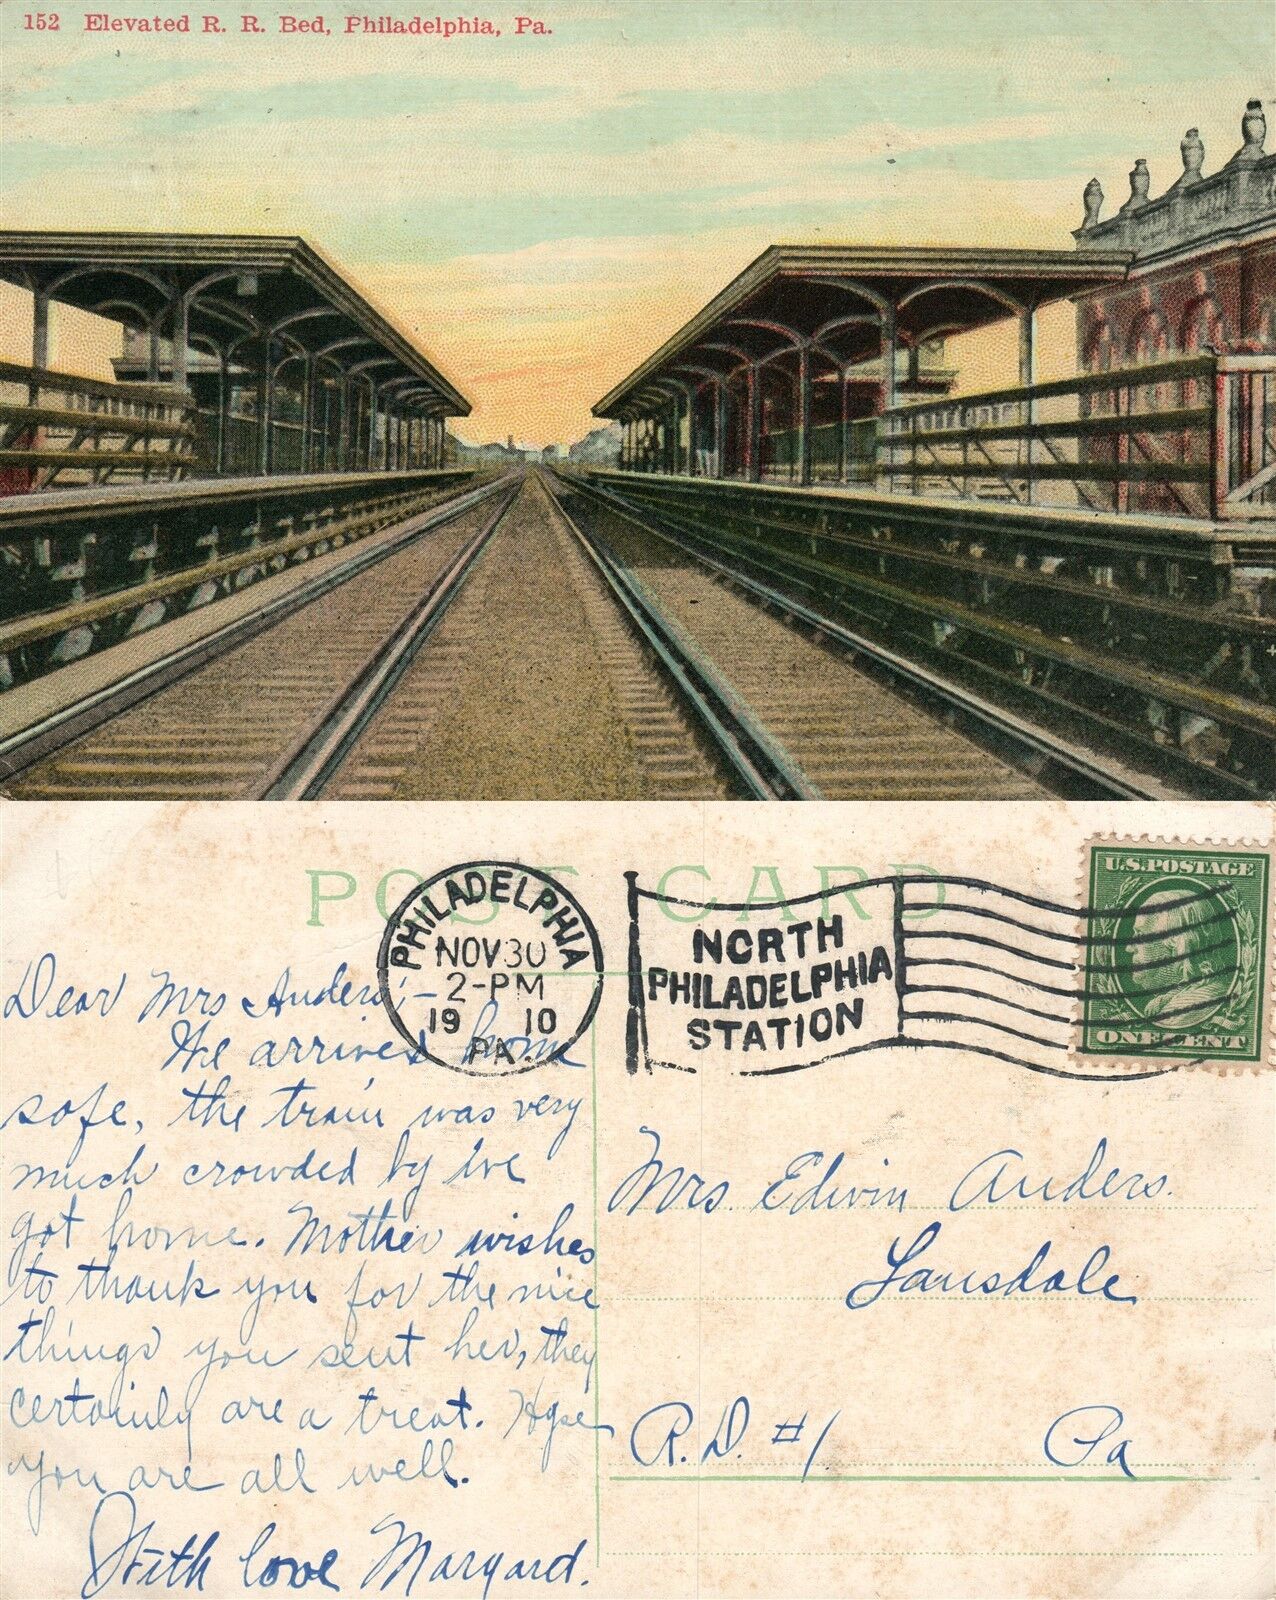 152 Elevated R. R. Bed, Philadelphia, Pa.
POST CARD
PHILADELPHIA
NOV 30
2-PM
19 10
PA.
NORTH
PHILADELPHIA
STATION
U.S. POSTAGE
ONE CENT
Dear Mrs Anders,—
We arrived home
safe, the train was very
much crowded by ive
got home. Mother wishes
to thank you for the nice
things you sent her, they
certainly are a treat. Hope
you are all well.
With love Margard.
Mrs. Edwin Anders.
Lansdale
R.D. #1 Pa